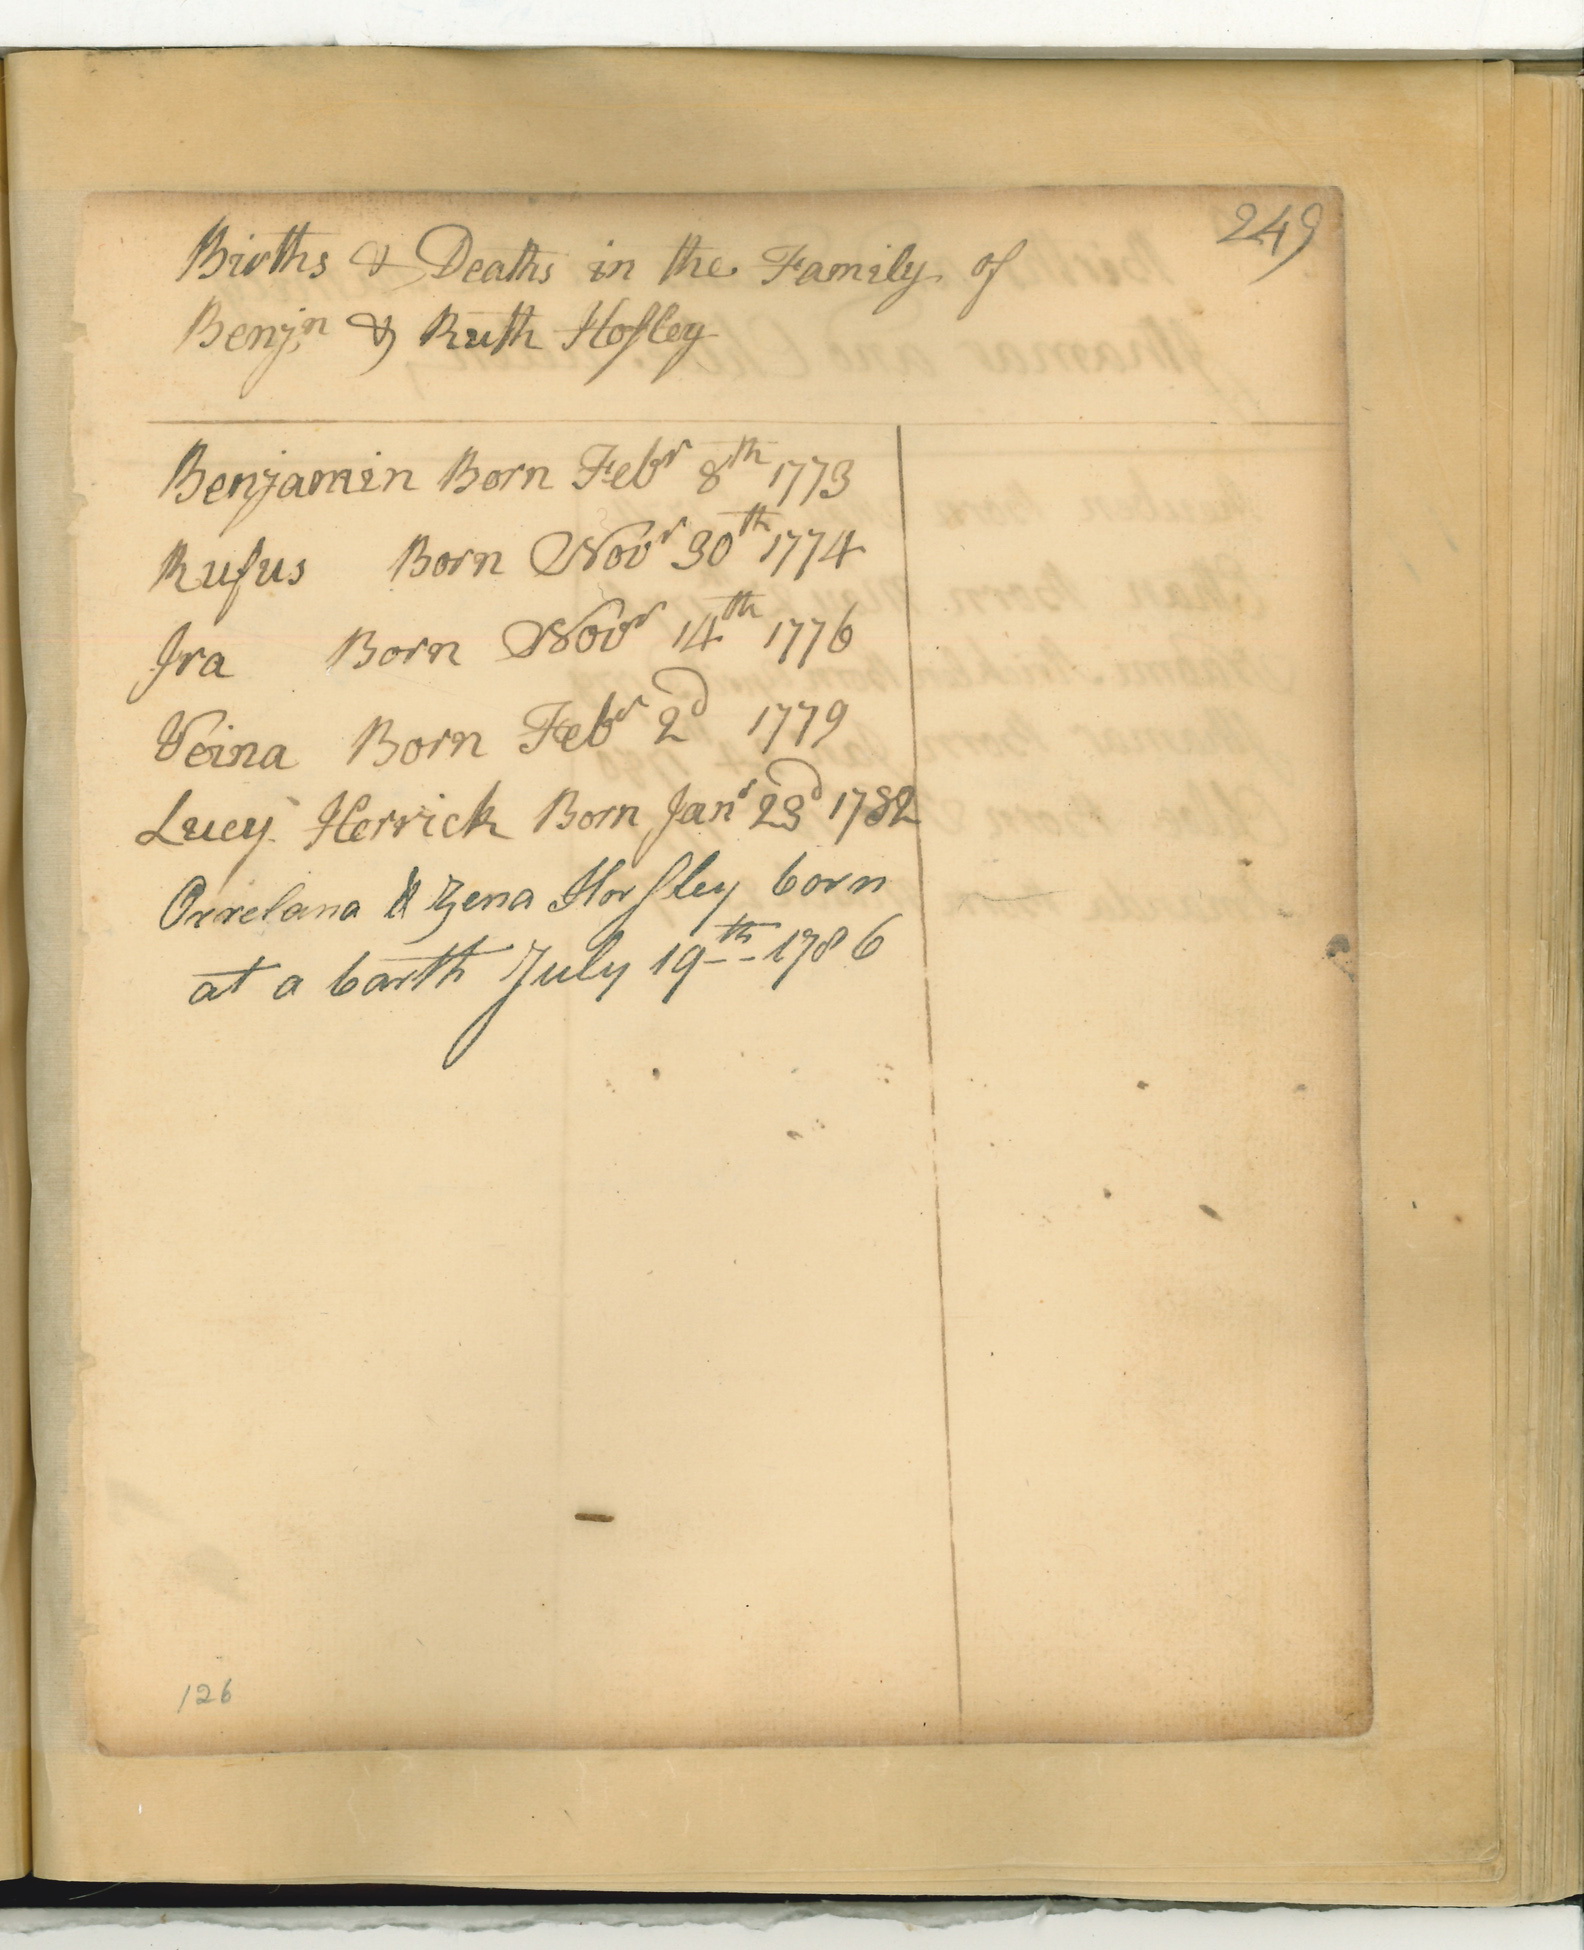 249
Births & Deaths in the Family of
Benjn & Ruth Hoſley
Benjamin Born Febr 8th 1773
Rufus Born Novr 30th 1774
Ira Born Novr 14th 1776
Veina Born Febr 2d 1779
Lucy Herrick Born Janr 23d 1782
Orrelana & Zena Horſley born
at a barth July 19th 1786
126